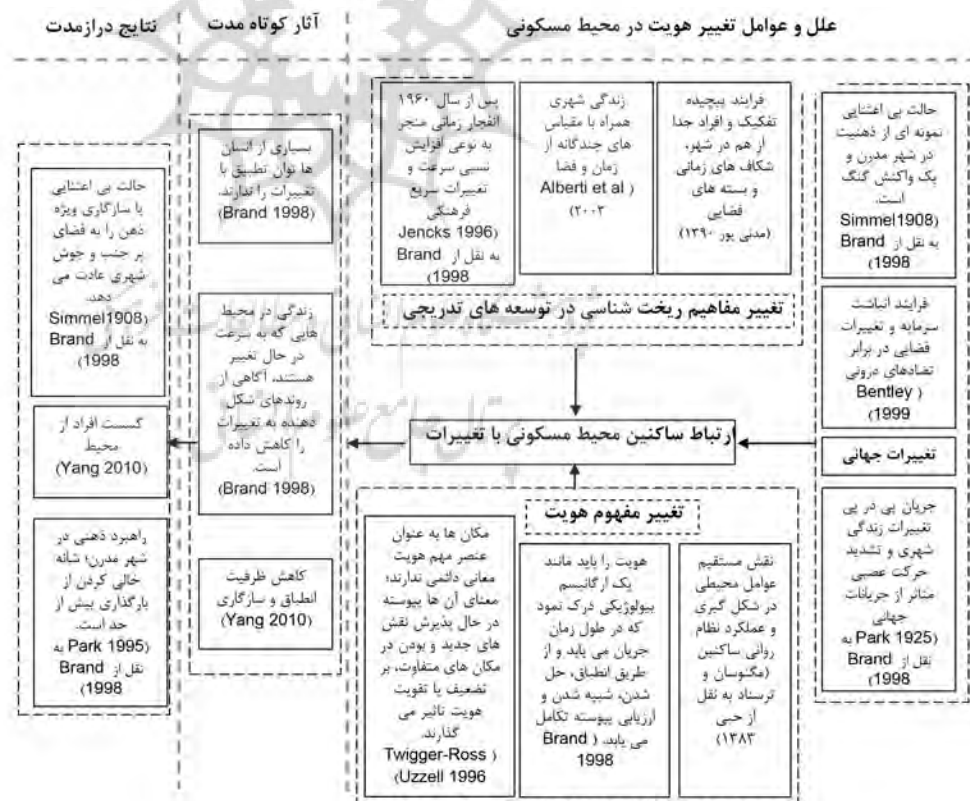 علل و عوامل تغییر هویت در محیط مسکونی
آثار کوتاه مدت
نتایج درازمدت
حالت بی اعتنایی
نمونه ای از ذهنیت
در شهر مدرن و
یک واکنش گنگ
است.
(Simmel1908
به نقل از Brand
1998)
فرایند انباشت
سرمایه و تغییرات
فضایی در برابر
تضادهای درونی
(Bentley
1999)
تغییرات جهانی
جریان پی در پی
تغییرات زندگی
شهری و تشدید
حرکت عصبی
متاثر از جریانات
جهانی
(Park 1925 به
نقل از Brand
1998)
فرایند پیچیده
تفکیک و افراد جدا
از هم در شهر،
شکاف های زمانی
و بسته های
فضایی
(مدنی پور ۱۳۹۰)
زندگی شهری
همراه با مقیاس
های چندگانه از
زمان و فضا
(Alberti et al
۲۰۰۳)
پس از سال ۱۹۶۰
انفجار زمانی منجر
به نوعی افزایش
نسبی سرعت و
تغییرات سریع
فرهنگی
(Jencks 1996
به نقل از Brand
1998)
تغییر مفاهیم ریخت شناسی در توسعه های تدریجی
ارتباط ساکنین محیط مسکونی با تغییرات
تغییر مفهوم هویت
نقش مستقیم
عوامل محیطی
در شکل گیری
و عملکرد نظام
روانی ساکنین
(مگنوسان و
ترستاد به نقل
از حبی
۱۳۸۳)
هویت را باید مانند
یک ارگانیسم
بیولوژیکی درک نمود
که در طول زمان
جریان می یابد و از
طریق انطباق، حل
شدن، شبیه شدن و
ارزیابی پیوسته تکامل
می یابد. (Brand
1998
مکان ها به عنوان
عنصر مهم هویت
معانی دائمی ندارند؛
معنای آن ها پیوسته
در حال پذیرش نقش
های جدید و بودن در
مکان های متفاوت، بر
تضعیف یا تقویت
هویت تاثیر می
گذارند.
(Twigger-Ross
Uzzell 1996)
بسیاری از انسان
ها توان تطبیق با
تغییرات را ندارند.
(Brand 1998)
زندگی در محیط
هایی که به سرعت
در حال تغییر
هستند، آگاهی از
روندهای شکل
دهنده به تغییرات
را کاهش داده
است.
(Brand 1998)
کاهش ظرفیت
انطباق و سازگاری
(Yang 2010)
حالت بی اعتنایی
یا سازگاری ویژه
ذهن را به فضای
پر جنب و جوش
شهری عادت می
دهد.
(Simmel1908
به نقل از Brand
1998
گسست افراد از
محیط
(Yang 2010)
راهبرد ذهنی در
شهر مدرن؛ شانه
خالی کردن از
بارگذاری بیش از
حد است.
(Park 1995 به
نقل از Brand
1998)
پژوهشگاه علوم انسانی و مطالعات فرهنگی
پرتال جامع علوم انسانی